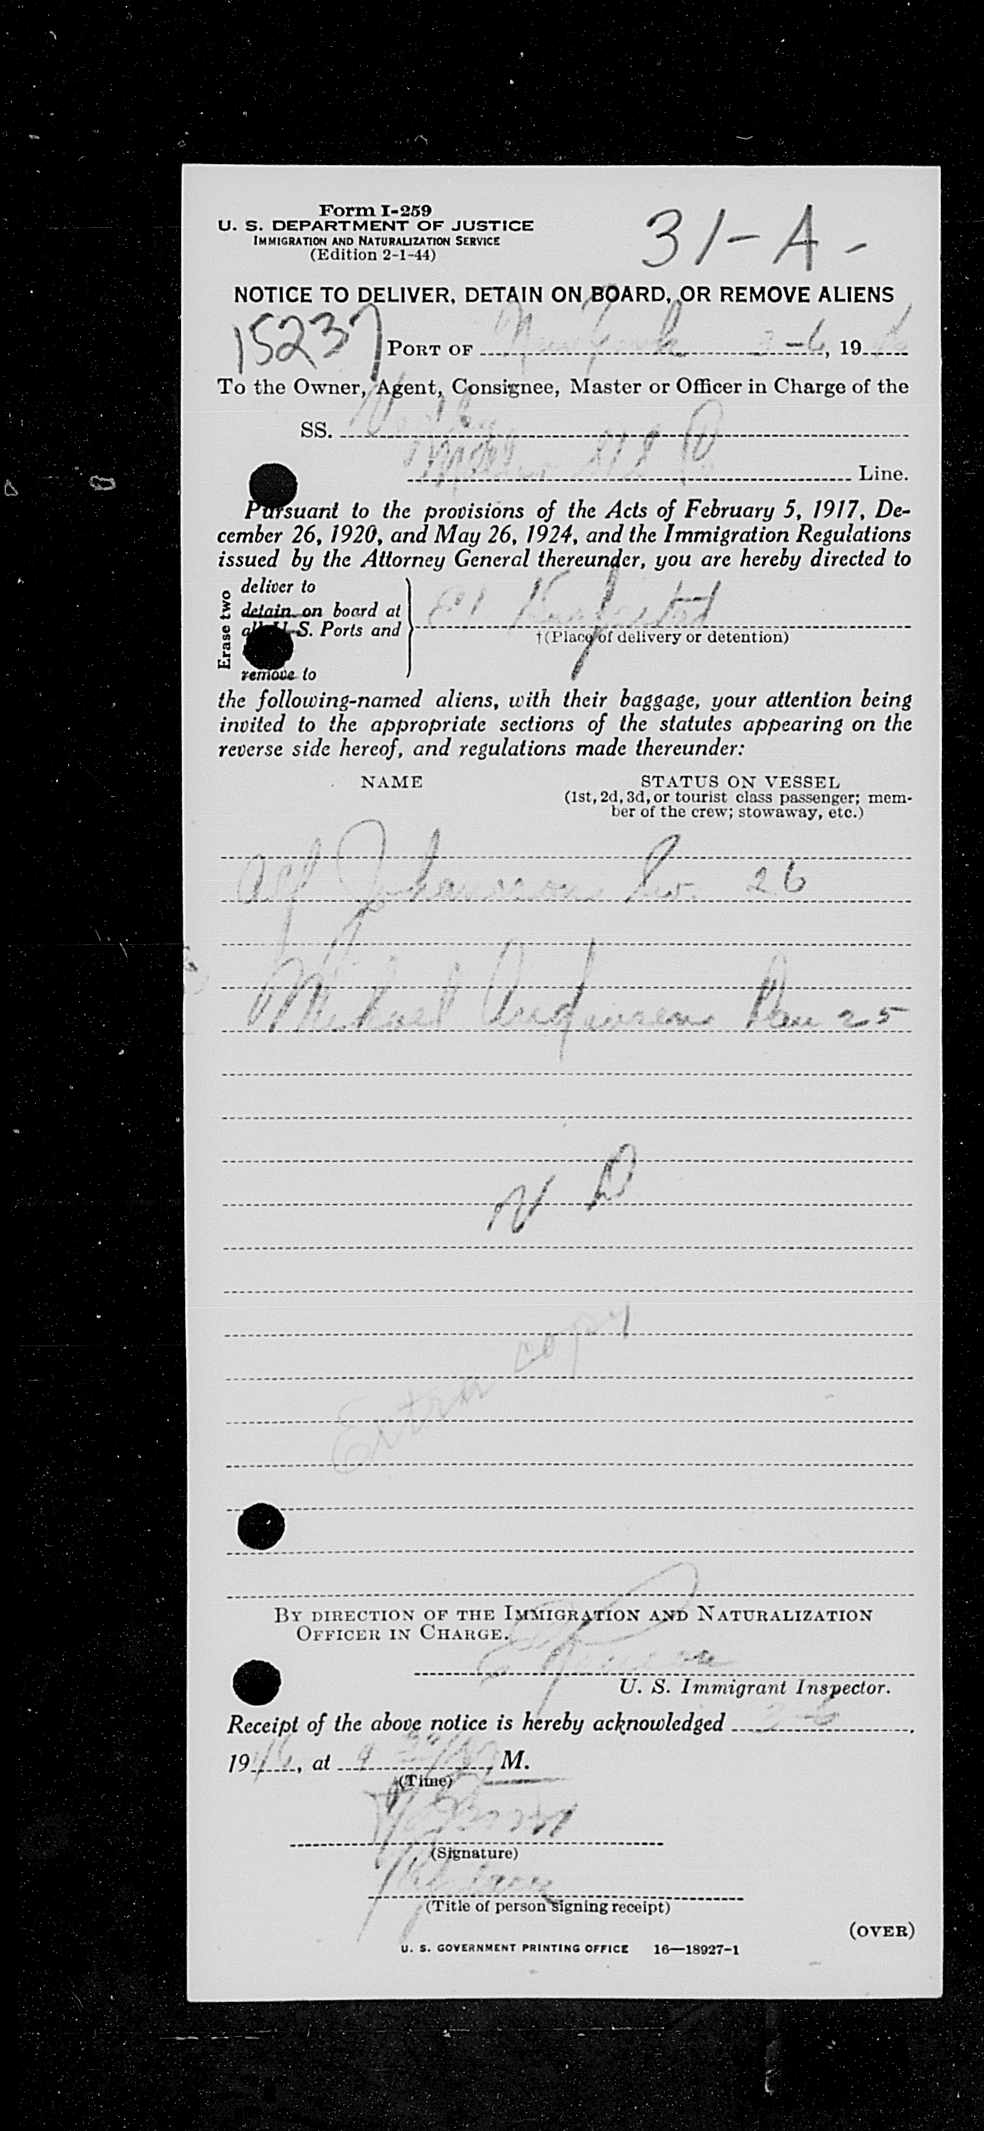 Form I-259
U. S. DEPARTMENT OF JUSTICE
IMMIGRATION AND NATURALIZATION SERVICE
(Edition 2-1-44)
31-A-
NOTICE TO DELIVER, DETAIN ON BOARD, OR REMOVE ALIENS
15237
PORT OF New York 2-6, 1946
To the Owner, Agent, Consignee, Master or Officer in Charge of the
SS.
Line.
Pursuant to the provisions of the Acts of February 5, 1917, De-
cember 26, 1920, and May 26, 1924, and the Immigration Regulations
issued by the Attorney General thereunder, you are hereby directed to
Erase two
deliver to
detain on board at
all U. S. Ports and
remove to
†(Place of delivery or detention)
the following-named aliens, with their baggage, your attention being
invited to the appropriate sections of the statutes appearing on the
reverse side hereof, and regulations made thereunder:
NAME
STATUS ON VESSEL
(1st, 2d, 3d, or tourist class passenger; mem-
ber of the crew; stowaway, etc.)
Alf Johansson Sw. 26
Michael Dan 25
N D
Extra copy
BY DIRECTION OF THE IMMIGRATION AND NATURALIZATION
OFFICER IN CHARGE.
U. S. Immigrant Inspector.
Receipt of the above notice is hereby acknowledged 2-6
1946, at 9 M.
(Time)
(Signature)
(Title of person signing receipt)
(OVER)
U. S. GOVERNMENT PRINTING OFFICE 16—18927-1